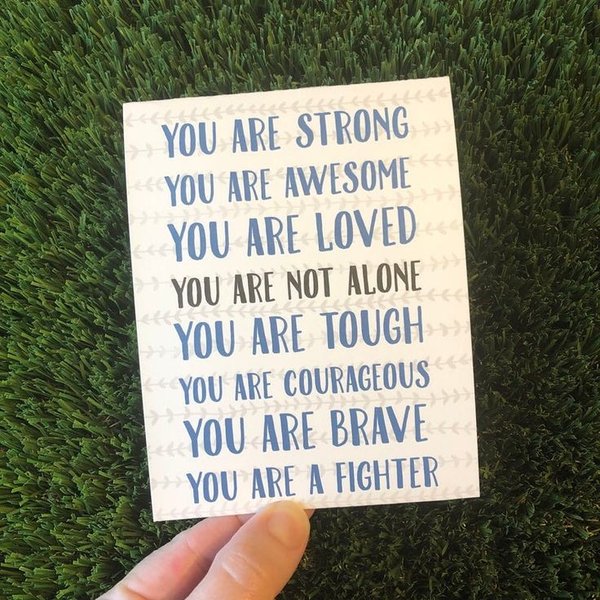 YOU ARE STRONG
YOU ARE AWESOME
YOU ARE LOVED
YOU ARE NOT ALONE
YOU ARE TOUGH
YOU ARE COURAGEOUS
YOU ARE BRAVE
YOU ARE A FIGHTER